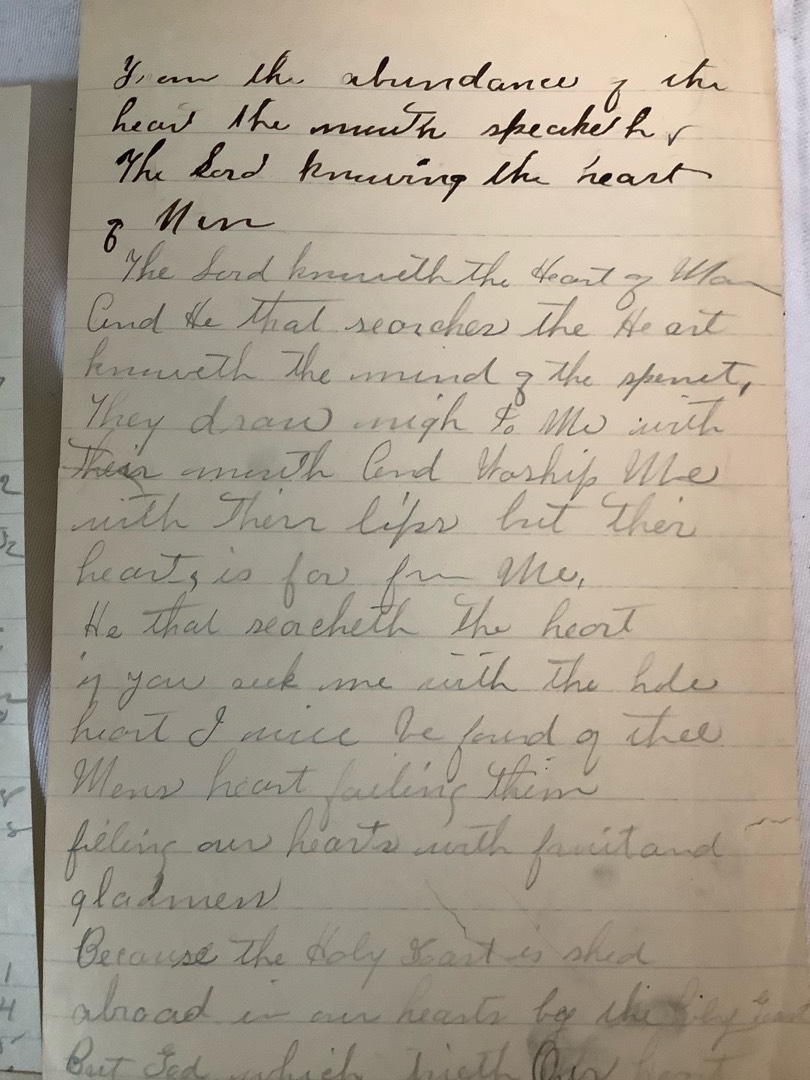 From the abundance of the
heart the mouth speaketh
The Lord knowing the heart
of Men
The Lord knoweth the Heart of Man
And He that searcher the Heart
knoweth the mind of the
They draw nigh to Me with
their mouth And Worship Me
with Their lips but their
heart, is far from Me,
He that searcheth the heart
if you seek me with the hole
heart I will be found of thee
Mens heart failing them
filling our hearts with fruit and
gladness
Because the Holy is shed
abroad in our hearts by the Holy
But God which trieth Our heart